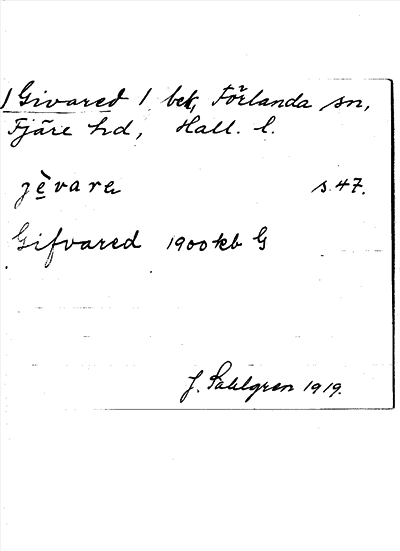 /Givared / bek, Förlanda sn,
Fjäre hd, Hall. l.
jèvara s. 47.
Gifvared 1900 kb G
J. Sahlgren 1919.